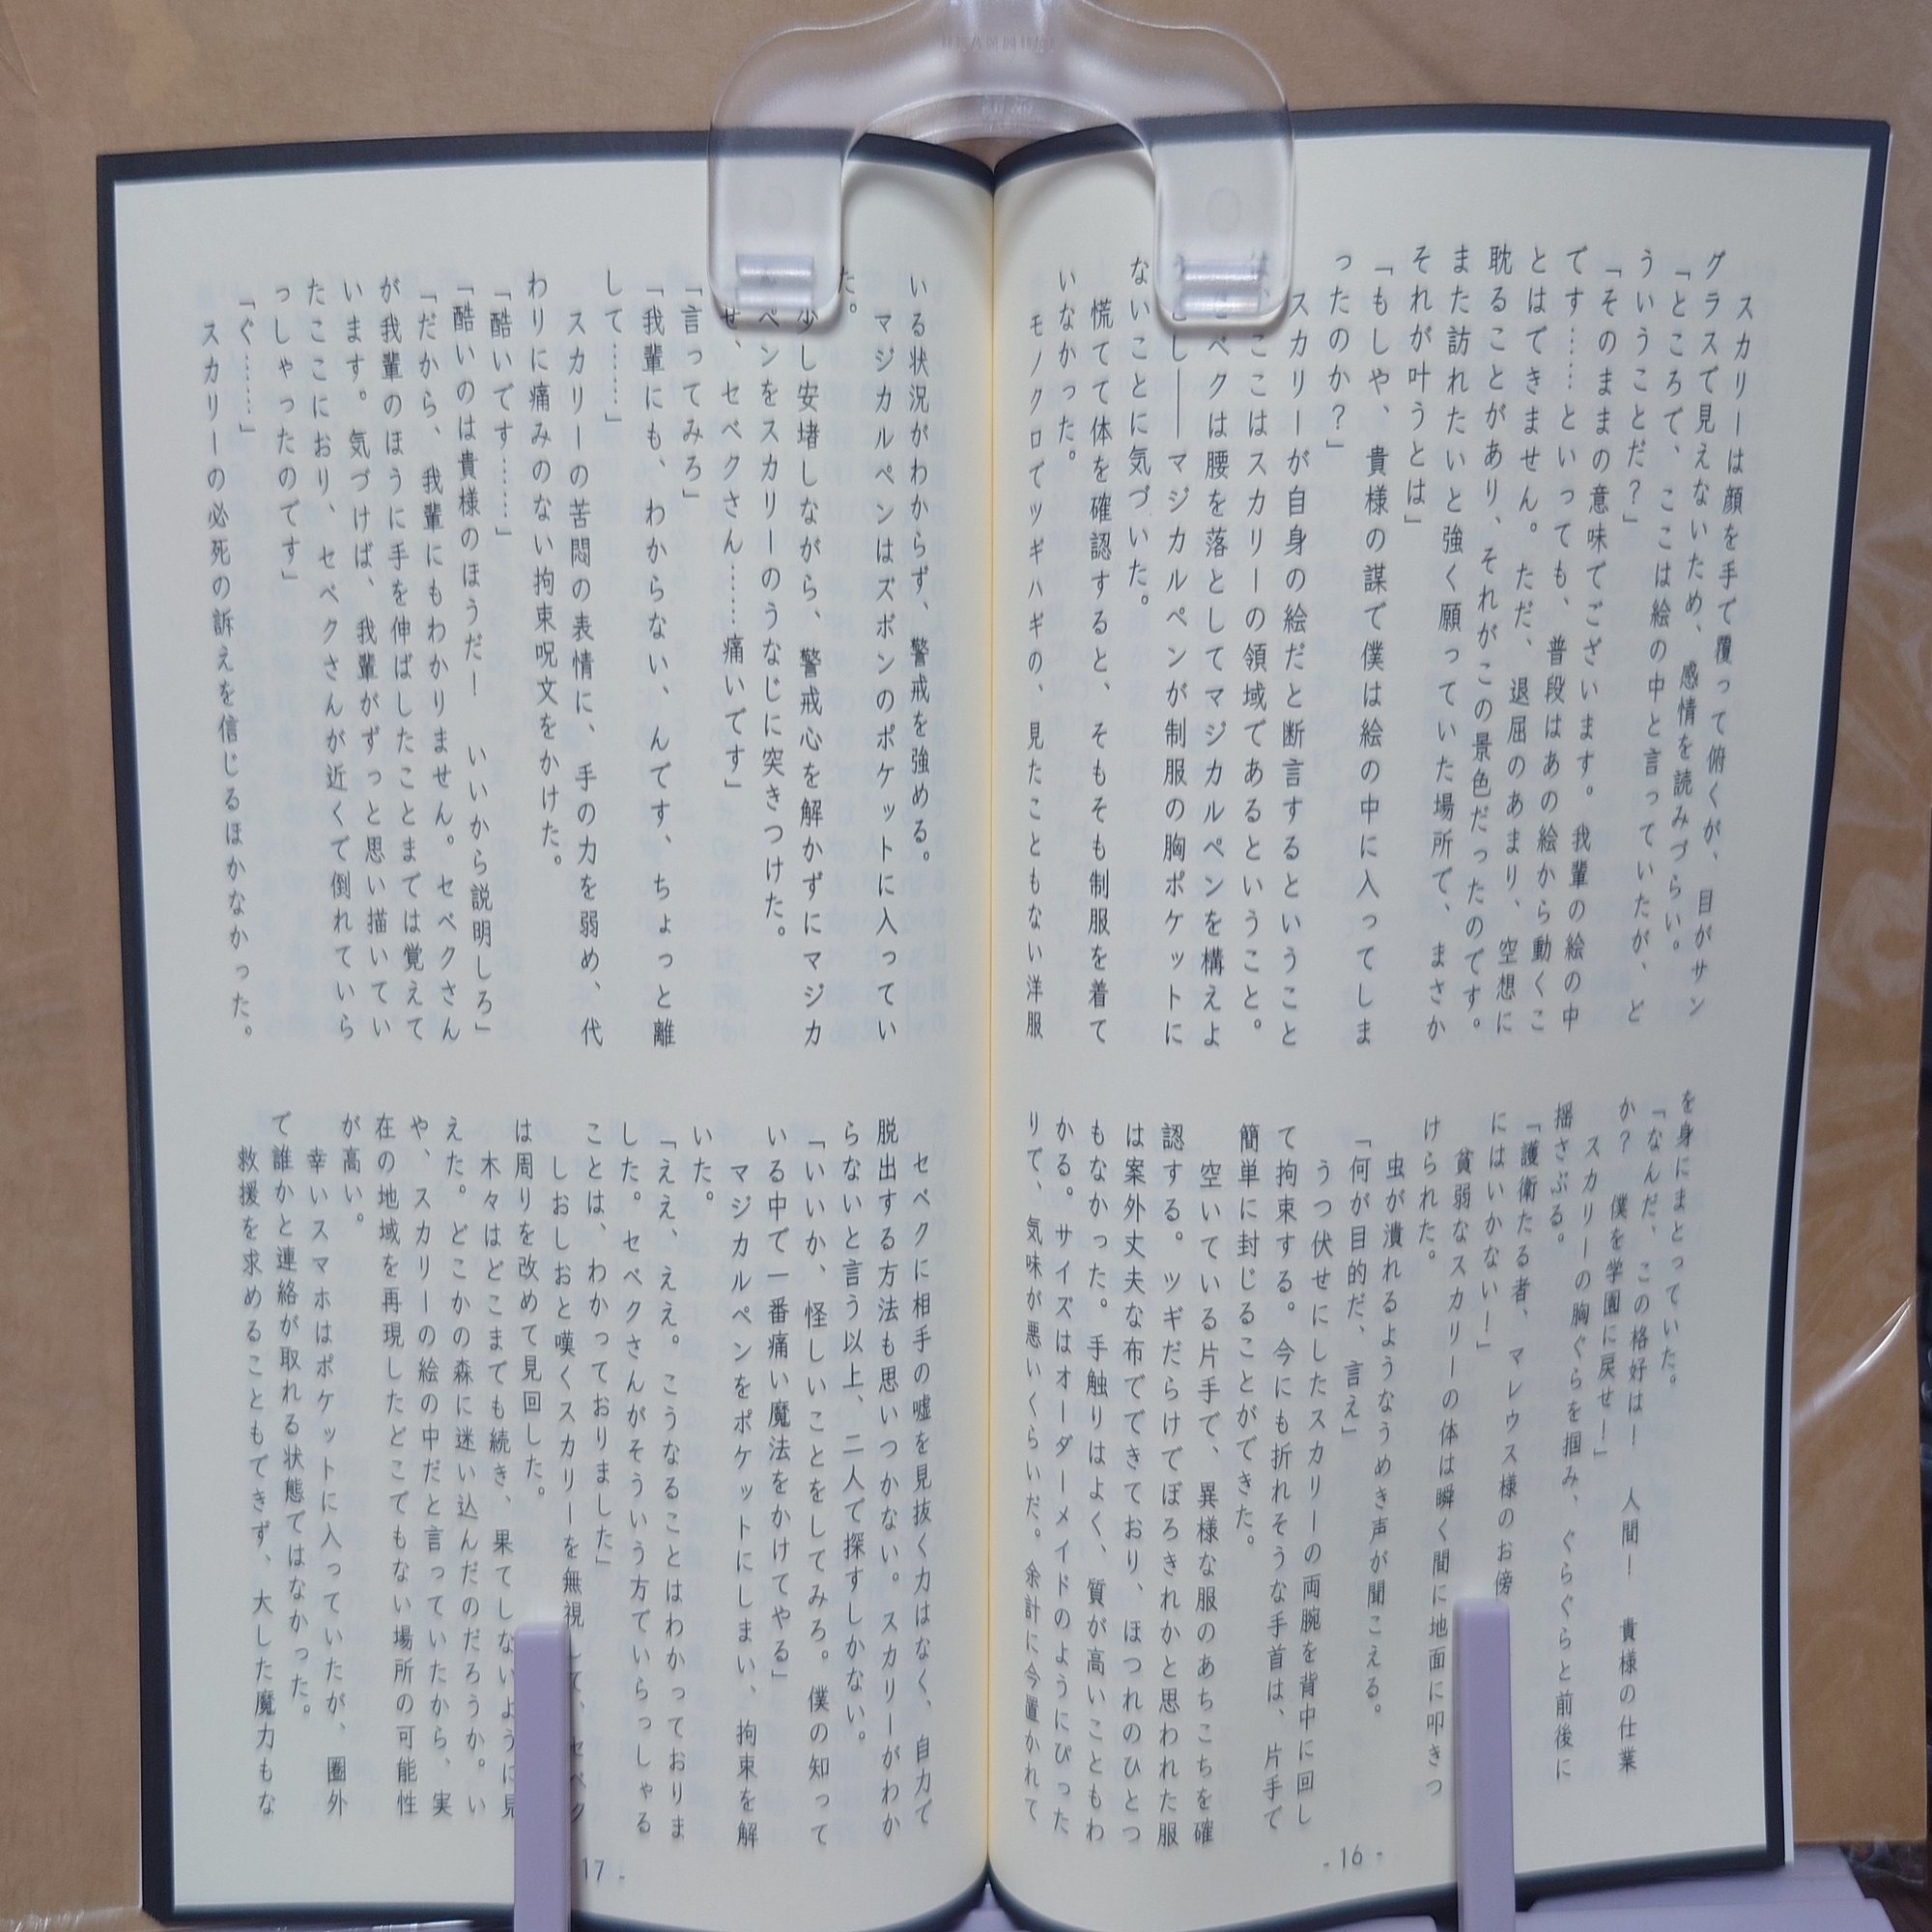 スカリーは顔を手で覆って俯くが、目がサン
グラスで見えないため、感情を読みづらい。
「ところで、ここは絵の中と言っていたが、ど
ういうことだ？」
「そのままの意味でございます。我輩の絵の中
です……といっても、普段はあの絵から動くこ
とはできません。ただ、退屈のあまり、空想に
耽ることがあり、それがこの景色だったのです。
また訪れたいと強く願っていた場所で、まさか
それが叶うとは」
「もしや、貴様の謀で僕は絵の中に入ってしま
ったのか？」
スカリーが自身の絵だと断言するということ
ここはスカリーの領域であるということ。
ベクは腰を落としてマジカルペンを構えよ
し――マジカルペンが制服の胸ポケットに
ないことに気づいた。
慌てて体を確認すると、そもそも制服を着て
いなかった。
モノクロでツギハギの、見たこともない洋服
を身にまとっていた。
「なんだ、この格好は！　人間！　貴様の仕業
か？　僕を学園に戻せ！」
スカリーの胸ぐらを掴み、ぐらぐらと前後に
揺さぶる。
「護衛たる者、マレウス様のお傍
にはいかない！」
貧弱なスカリーの体は瞬く間に地面に叩きつ
けられた。
虫が潰れるようなうめき声が聞こえる。
「何が目的だ、言え」
うつ伏せにしたスカリーの両腕を背中に回し
て拘束する。今にも折れそうな手首は、片手で
簡単に封じることができた。
空いている片手で、異様な服のあちこちを確
認する。ツギだらけでぼろきれかと思われた服
は案外丈夫な布でできており、ほつれのひとつ
もなかった。手触りはよく、質が高いこともわ
かる。サイズはオーダーメイドのようにぴった
りで、気味が悪いくらいだ。余計に今置かれて
- 16 -
いる状況がわからず、警戒を強める。
マジカルペンはズボンのポケットに入ってい
た。
少し安堵しながら、警戒心を解かずにマジカ
ペンをスカリーのうなじに突きつけた。
せ、セベクさん……痛いです」
「言ってみろ」
「我輩にも、わからない、んです、ちょっと離
して……」
スカリーの苦悶の表情に、手の力を弱め、代
わりに痛みのない拘束呪文をかけた。
「酷いです……」
「酷いのは貴様のほうだ！　いいから説明しろ」
「だから、我輩にもわかりません。セベクさん
が我輩のほうに手を伸ばしたことまでは覚えて
います。気づけば、我輩がずっと思い描いてい
たここにおり、セベクさんが近くで倒れていら
っしゃったのです」
「ぐ……」
スカリーの必死の訴えを信じるほかなかった。
セベクに相手の嘘を見抜く力はなく、自力で
脱出する方法も思いつかない。スカリーがわか
らないと言う以上、二人で探すしかない。
「いいか、怪しいことをしてみろ。僕の知って
いる中で一番痛い魔法をかけてやる」
マジカルペンをポケットにしまい、拘束を解
いた。
「ええ、ええ。こうなることはわかっておりま
した。セベクさんがそういう方でいらっしゃる
ことは、わかっておりました」
しおしおと嘆くスカリーを無視して、セベク
は周りを改めて見回した。
木々はどこまでも続き、果てしないように見
えた。どこかの森に迷い込んだのだろうか。い
や、スカリーの絵の中だと言っていたから、実
在の地域を再現したどこでもない場所の可能性
が高い。
幸いスマホはポケットに入っていたが、圏外
で誰かと連絡が取れる状態ではなかった。
救援を求めることもできず、大した魔力もな
17 -